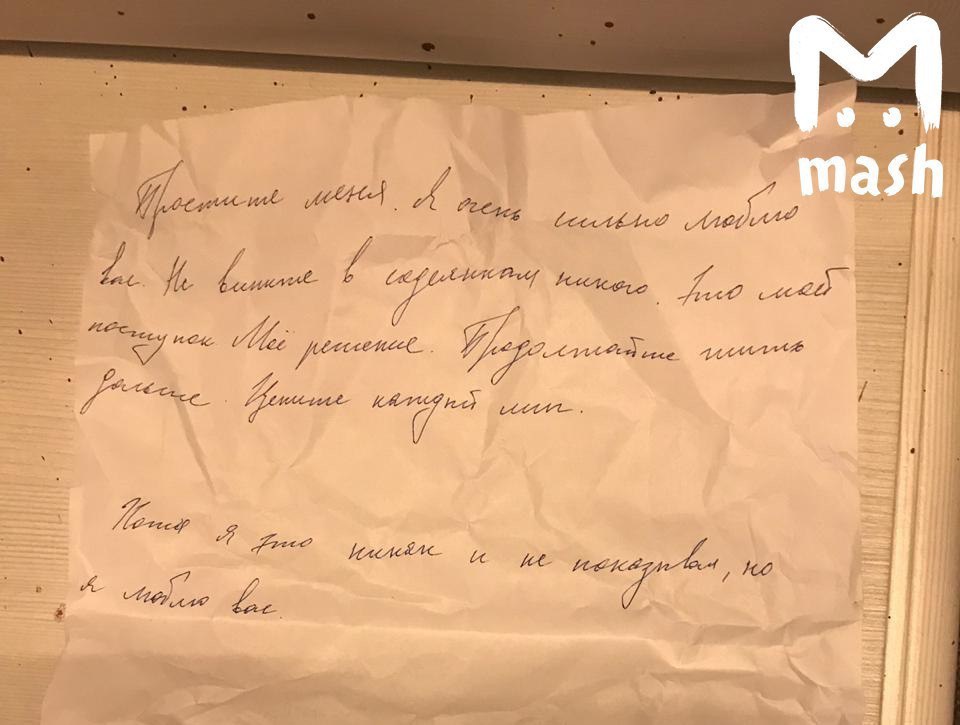 mash
Простите меня. Я очень сильно люблю
вас. Не вините в содеянном никого. Это мой
поступок. Моё решение. Продолжайте жить
дальше. Цените каждый миг.
Хотя я это никак и не показывал, но
я люблю вас.